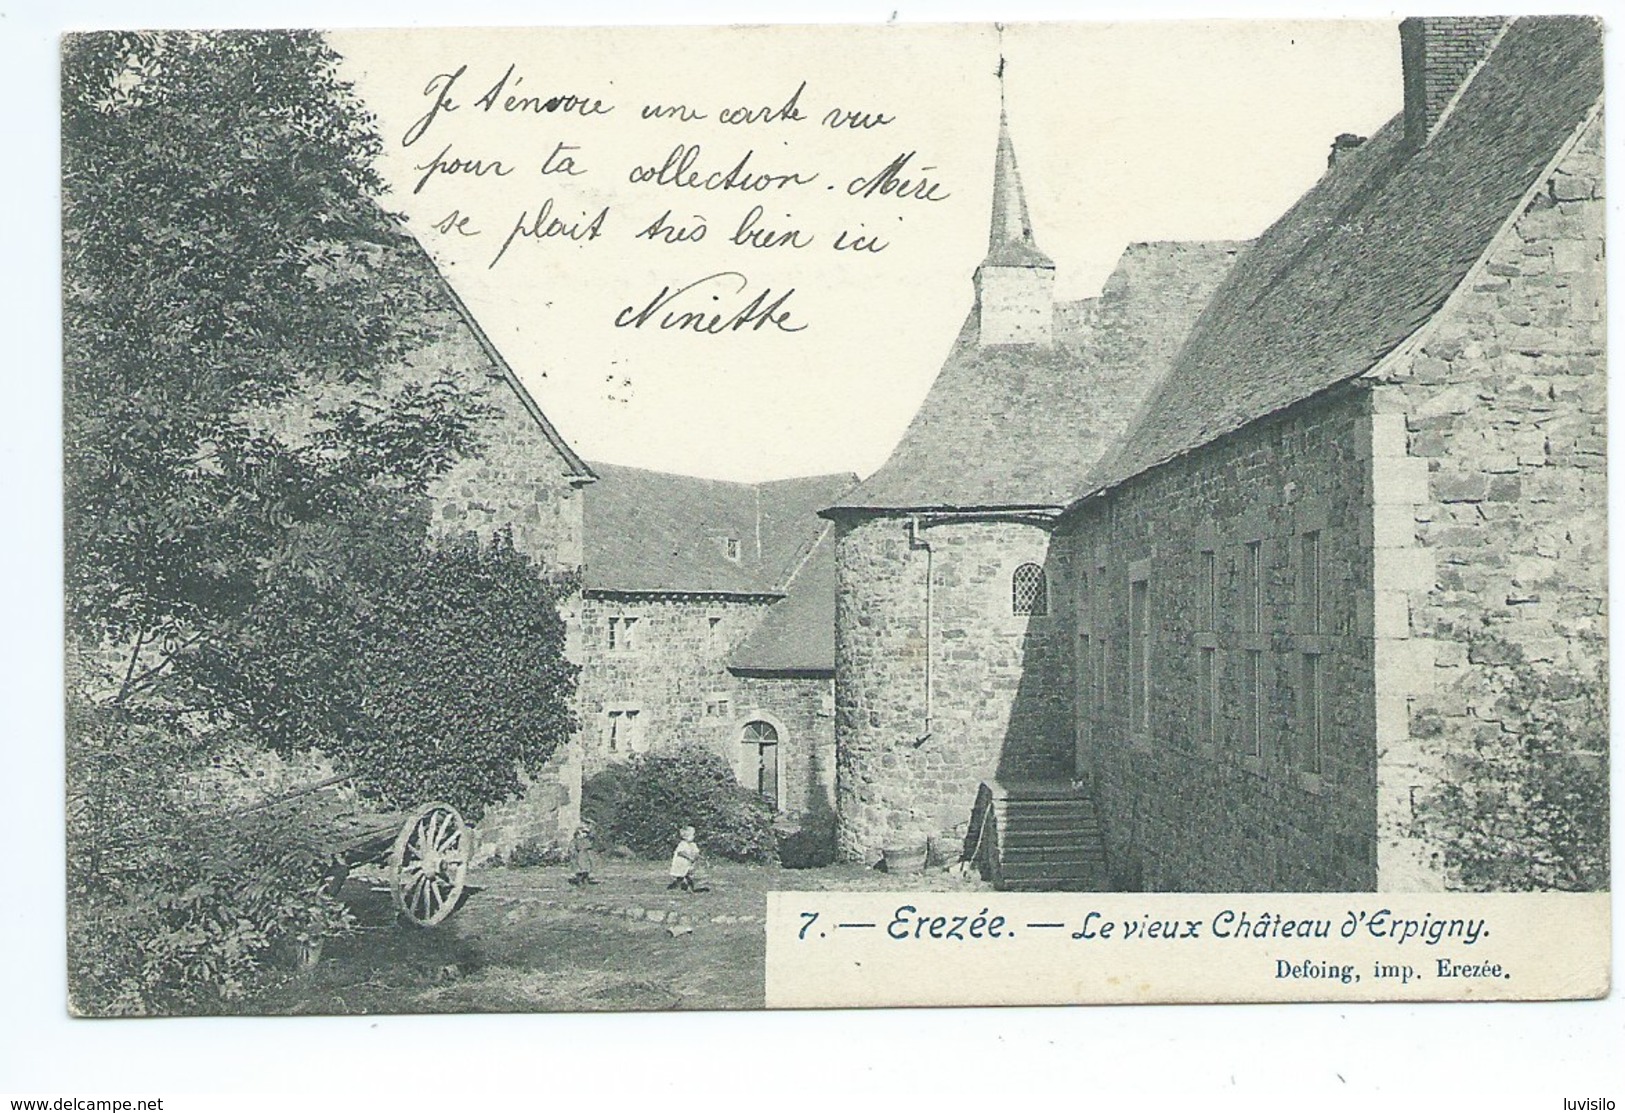 Je t'envoie une carte vue
pour ta collection. Mère
se plait très bien ici
Ninette
7. — Erezée. — Le vieux Château d'Erpigny.
Defoing, imp. Erezée.
www.delcampe.net
luvisilo